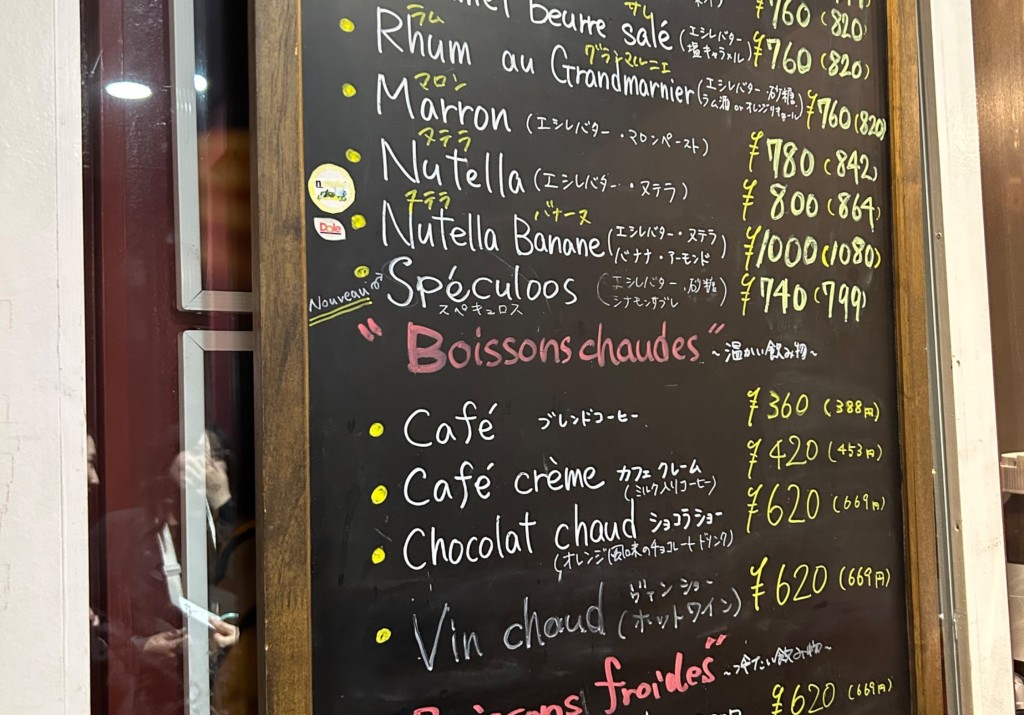 ¥760 (820)
beurre salé (エシレバター・塩キャラメル) ¥760 (820)
ラム グランマルニエ
Rhum au Grandmarnier (エシレバター・砂糖 ラム酒 or オレンジリキュール) ¥760 (820)
マロン
Marron (エシレバター・マロンペースト) ¥780 (842)
ヌテラ
Nutella (エシレバター・ヌテラ) ¥800 (864)
ヌテラ バナーヌ
Nutella Banane (エシレバター・ヌテラ バナナ・アーモンド) ¥1000 (1080)
Dole
Nouveau Spéculoos (エシレバター・砂糖 シナモンサブレ) ¥740 (799)
スペキュロス
"Boissons chaudes" ~温かい飲み物~
Café ブレンドコーヒー ¥360 (388円)
Café crème カフェクレーム (ミルク入りコーヒー) ¥420 (453円)
Chocolat chaud ショコラショー ¥620 (669円)
(オレンジ風味のチョコレートドリンク)
Vin chaud ヴァンショー (ホットワイン) ¥620 (669円)
Boissons froides" ~冷たい飲み物~
¥620 (669円)